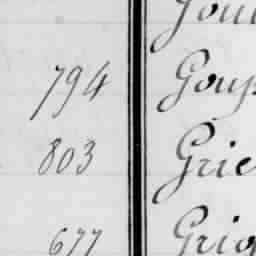 794 Goup
803 Grie
677 Grig